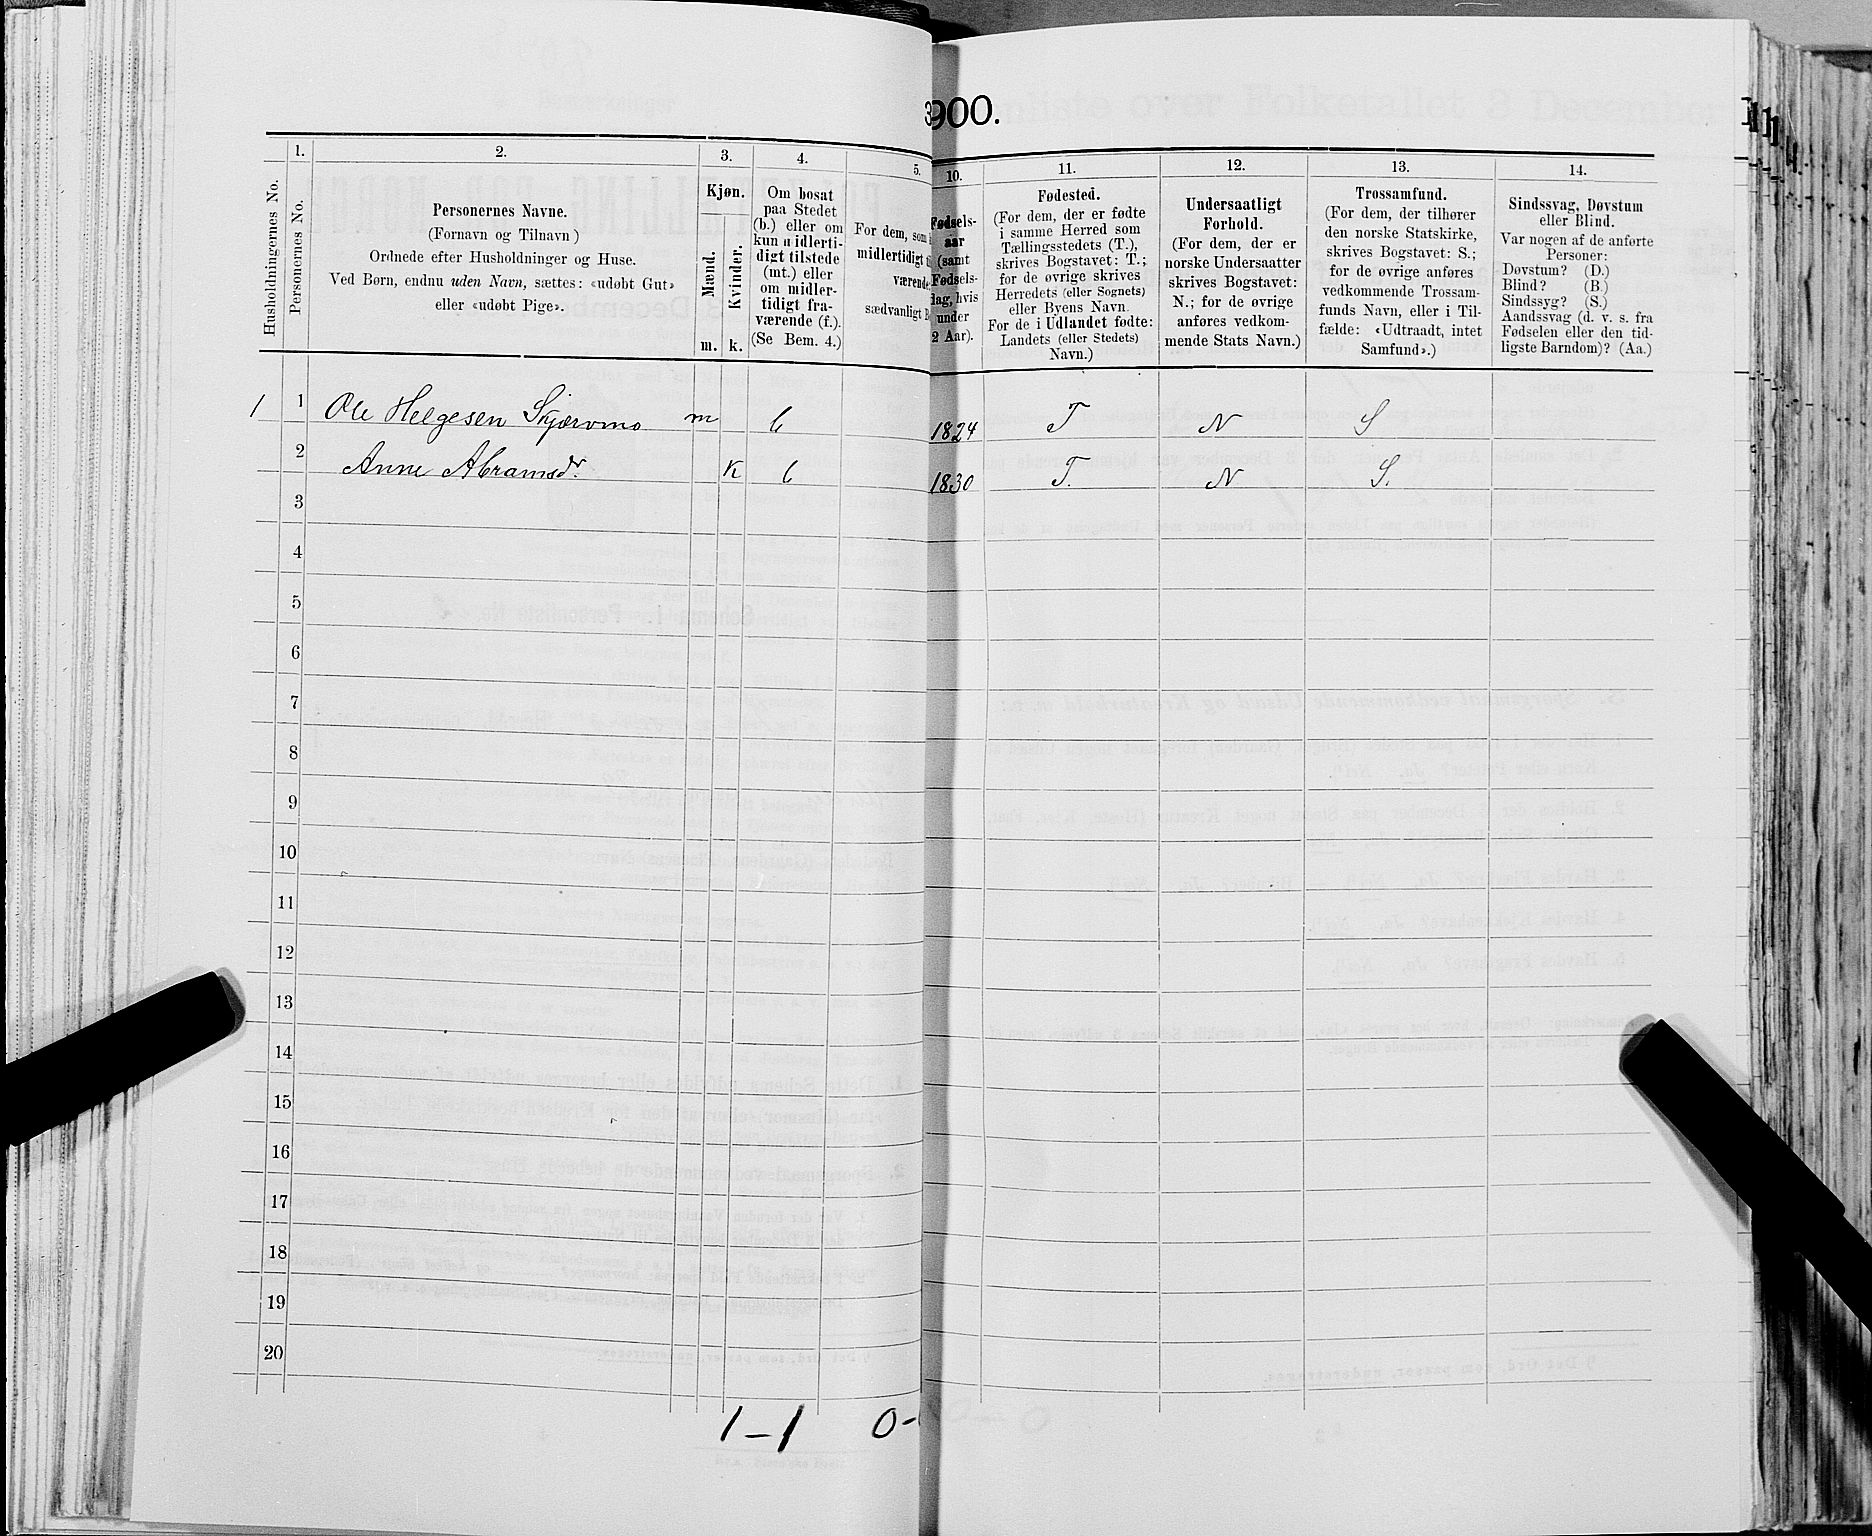 900.
1.
2.
3.
4.
5.
Husholdningernes No.
Personernes No.
Personernes Navne.
(Fornavn og Tilnavn)
Ordnede efter Husholdninger og Huse.
Ved Børn, endnu uden Navn, sættes: «udøbt Gut»
eller «udøbt Pige».
Kjøn.
Mænd.
Kvinder.
m. k.
Om bosat
paa Stedet
(b.) eller om
kun midlerti-
digt tilstede
(mt.) eller
om midler-
tidigt fra-
værende (f.).
(Se Bem. 4.)
For dem, som
midlertidigt
værende
sædvanligt
1 1 Ole Helgesen Skjærvmo m b
2 Anne Abramsdr. K b
3
4
5
6
7
8
9
10
11
12
13
14
15
16
17
18
19
20
1 – 1 0 -
10.
11.
12.
13.
14.
Fødsels-
aar
(samt
Fødsels-
dag, hvis
under
2 Aar).
Fødested.
(For dem, der er fødte
i samme Herred som
Tællingsstedets (T.),
skrives Bogstavet: T.;
for de øvrige skrives
Herredets (eller Sognets)
eller Byens Navn.
For de i Udlandet fødte:
Landets (eller Stedets)
Navn.)
Undersaatligt
Forhold.
(For dem, der er
norske Undersaatter
skrives Bogstavet:
N.; for de øvrige
anføres vedkom-
mende Stats Navn.)
Trossamfund.
(For dem, der tilhører
den norske Statskirke,
skrives Bogstavet: S.;
for de øvrige anføres
vedkommende Trossam-
funds Navn, eller i Til-
fælde: «Udtraadt, intet
Samfund».)
Sindssvag, Døvstum
eller Blind.
Var nogen af de anførte
Personer:
Døvstum? (D.)
Blind? (B.)
Sindssyg? (S.)
Aandssvag (d. v. s. fra
Fødselen eller den tid-
ligste Barndom)? (Aa.)
1824 T N S
1830 T. N S.